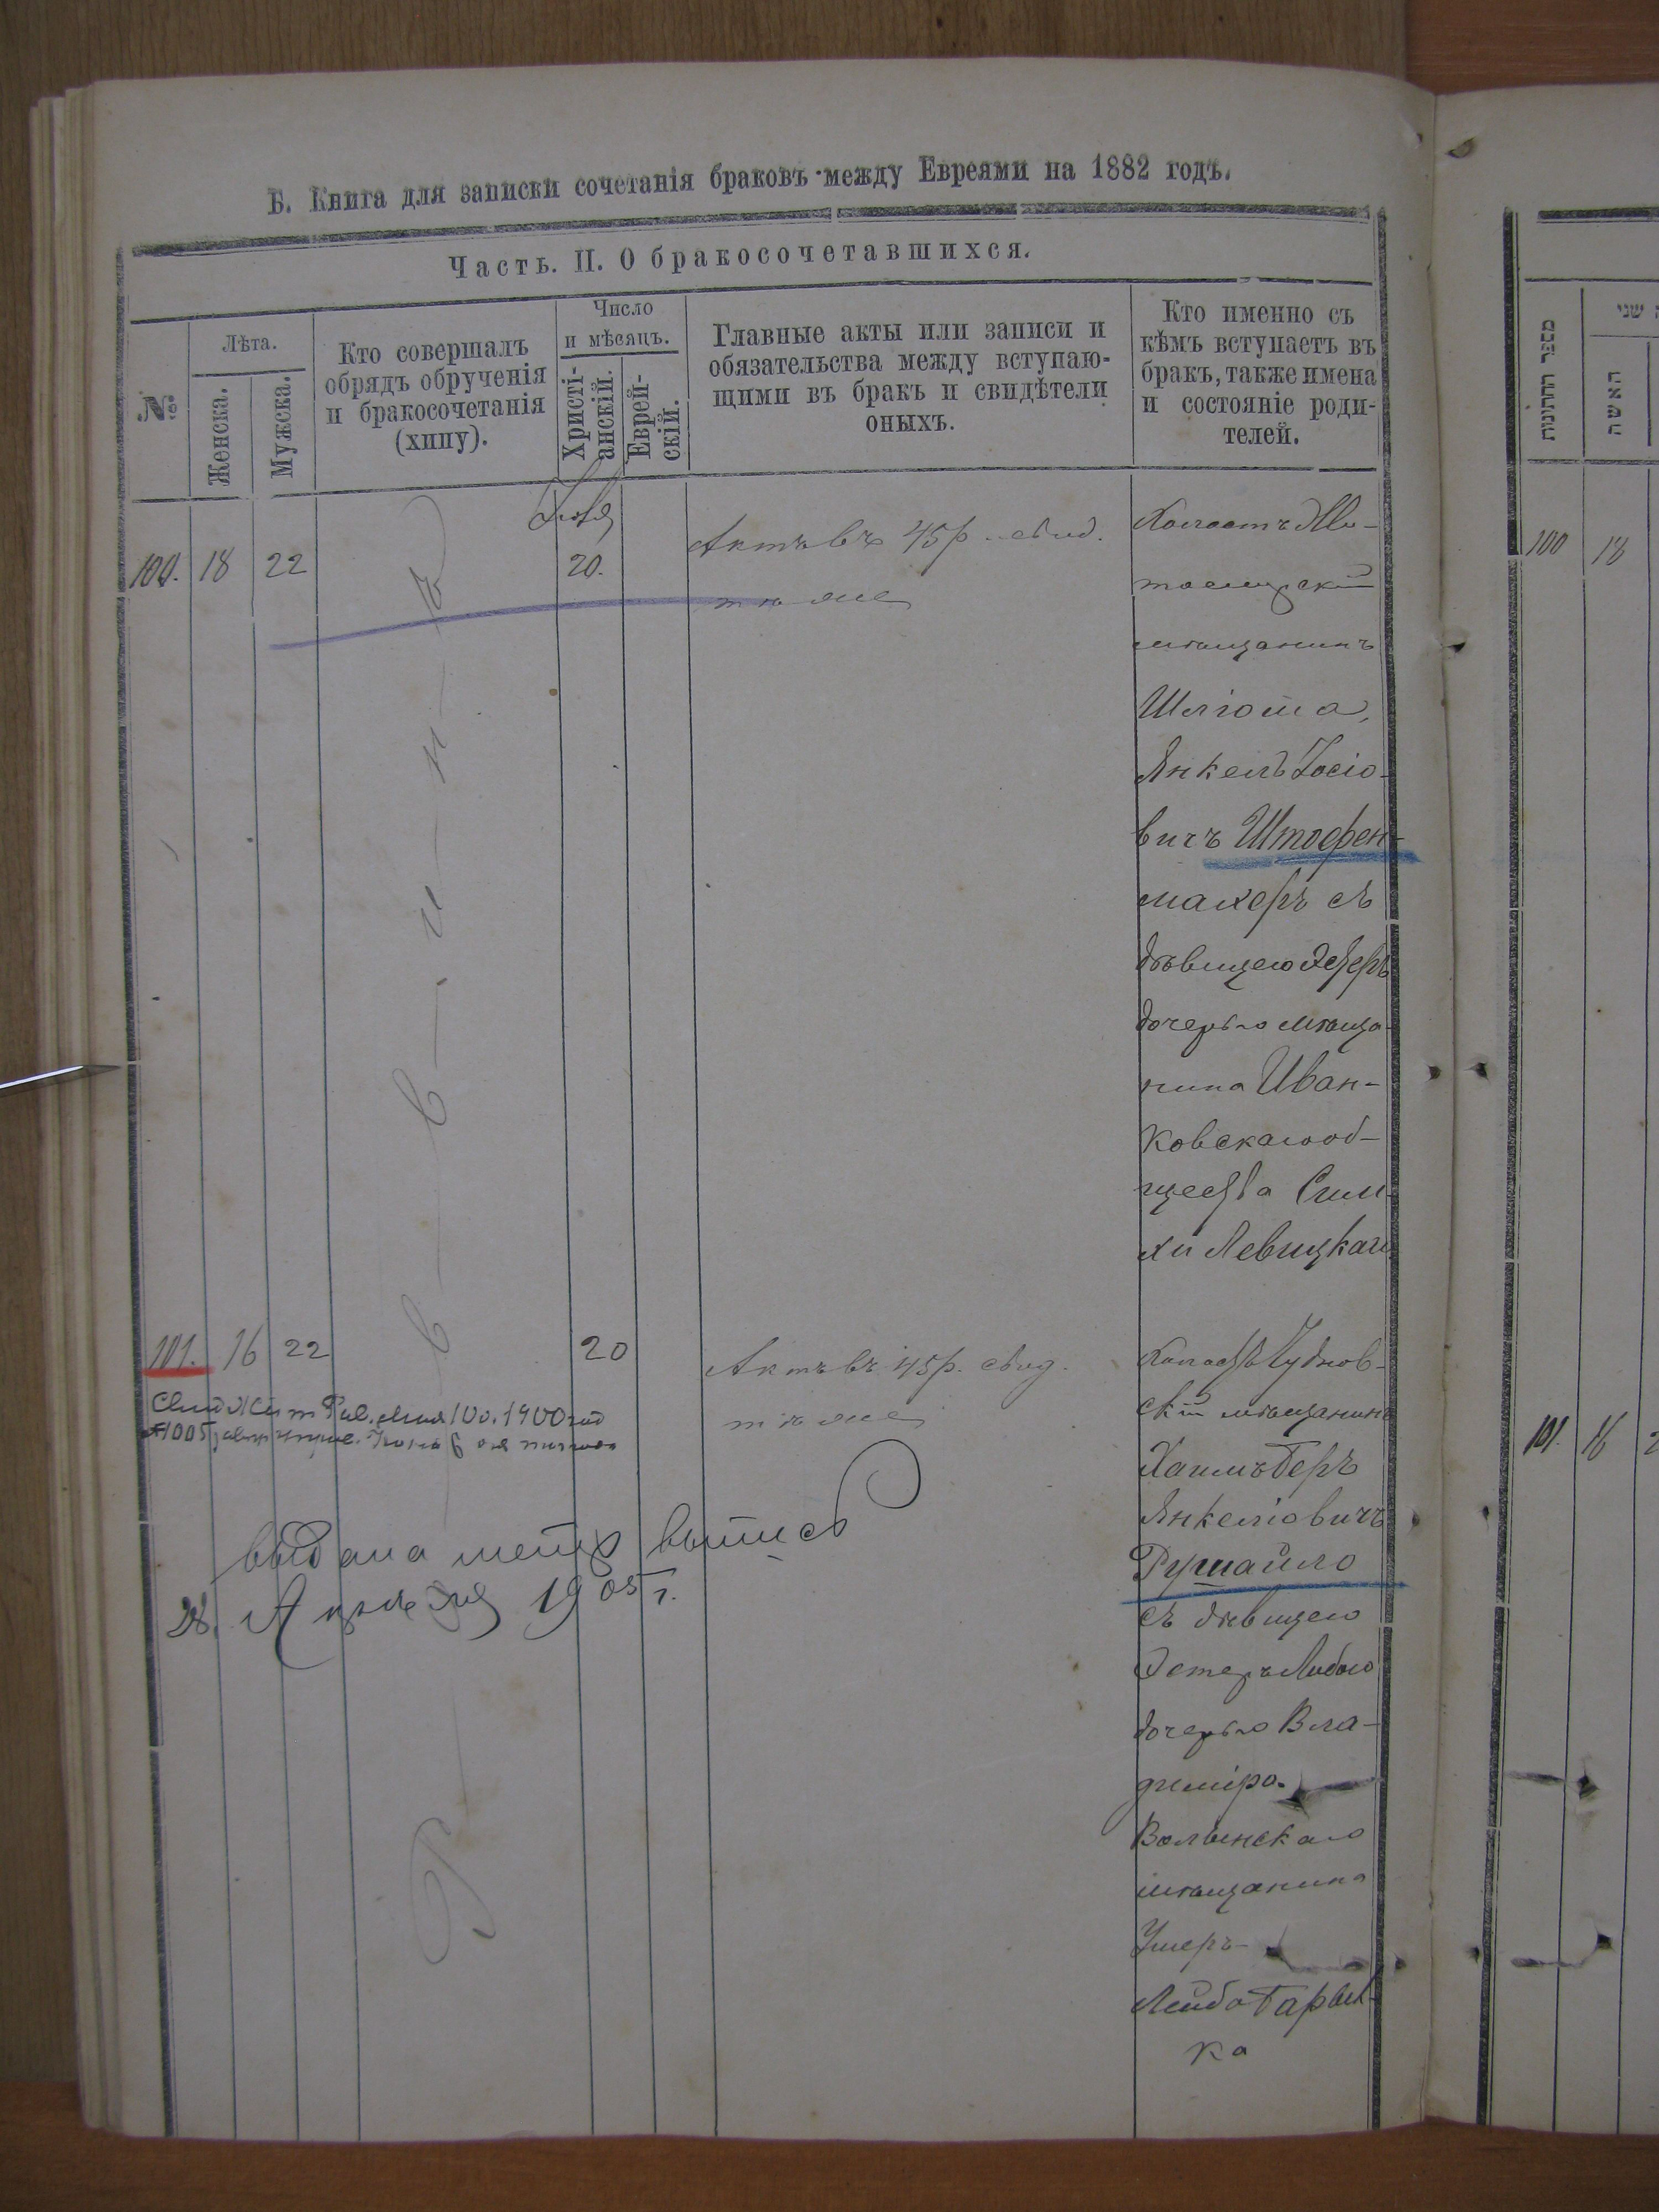 Б. Книга для записки сочетанія браковъ между Евреями на 1882 годъ.
Часть. II. О бракосочетавшихся.
№
Лѣта.
Женска.
Мужска.
Кто совершалъ
обрядъ обрученія
и бракосочетанія
(хипу).
Число
и мѣсяцъ.
Христі-
анскій.
Еврей-
скій.
Главные акты или записи и
обязательства между вступаю-
щими въ бракъ и свидѣтели
оныхъ.
Кто именно съ
кѣмъ вступаетъ въ
бракъ, также имена
и состояніе роди-
телей.
100. 18 22
20.
Актъ въ 45 р. свид.
тѣ же
Холостъ Жи-
томирскій
мѣщанинъ
Шліома
Янкель Іосіо-
вичъ Штофен-
махеръ съ
дѣвицею Эстеръ
дочерью мѣща-
нина Иван-
ковскаго об-
щества Сим-
хи Левицкаго
101. 16 22
20
Актъ въ 45 р. свид.
тѣ же
Холостъ Чуднов-
скій мѣщанинъ
Хаимъ Беръ
Янкеліовичъ
Рушайло
съ дѣвицею
Эстеръ Либою
дочерью Вла-
диміро-
Волынскаго
мѣщанина
Умеръ-
Лейба
ка
выдана метр выпись
28 Апрѣля 1905 г.
Р-в-в-и-н-ъ
מספר החתונות
שני
האשה
100 18
101. 16